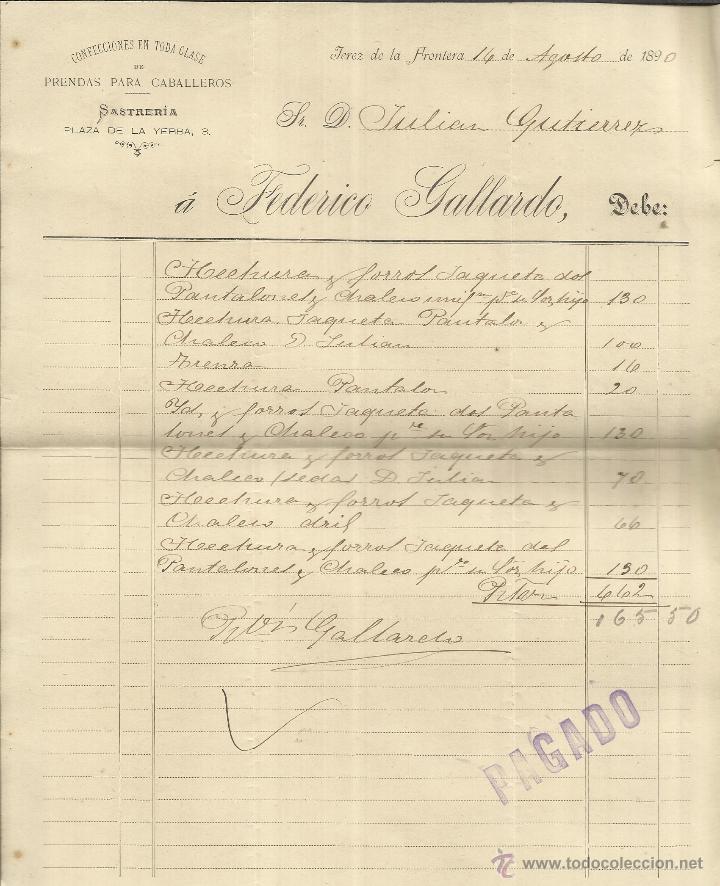 CONFECCIONES EN TODA CLASE
DE
PRENDAS PARA CABALLEROS
SASTRERÍA
PLAZA DE LA YERBA, 3.
Jerez de la Frontera 16 de Agosto de 1890
Sr. D. Julian Gutierrez
á Federico Gallardo, Debe:
Hechura y forros Jaqueta dos
Pantalones y Chaleco pª su Sor hijo 130
Hechura Jaqueta Pantalon y
Chaleco D. Julian 100
16
Hechura Pantalon 20
Yd. y forros Jaqueta dos Panta
lones y Chaleco pra su Sor hijo 130
Hechura y forros Jaqueta y
Chaleco (seda) D. Julian 70
Hechura y forros Jaqueta y
Chaleco dril 66
Hechura y forros Jaqueta dos
Pantalones y Chaleco pra su Sor hijo 130
662
165 50
Gallardo
PAGADO
www.todocoleccion.net